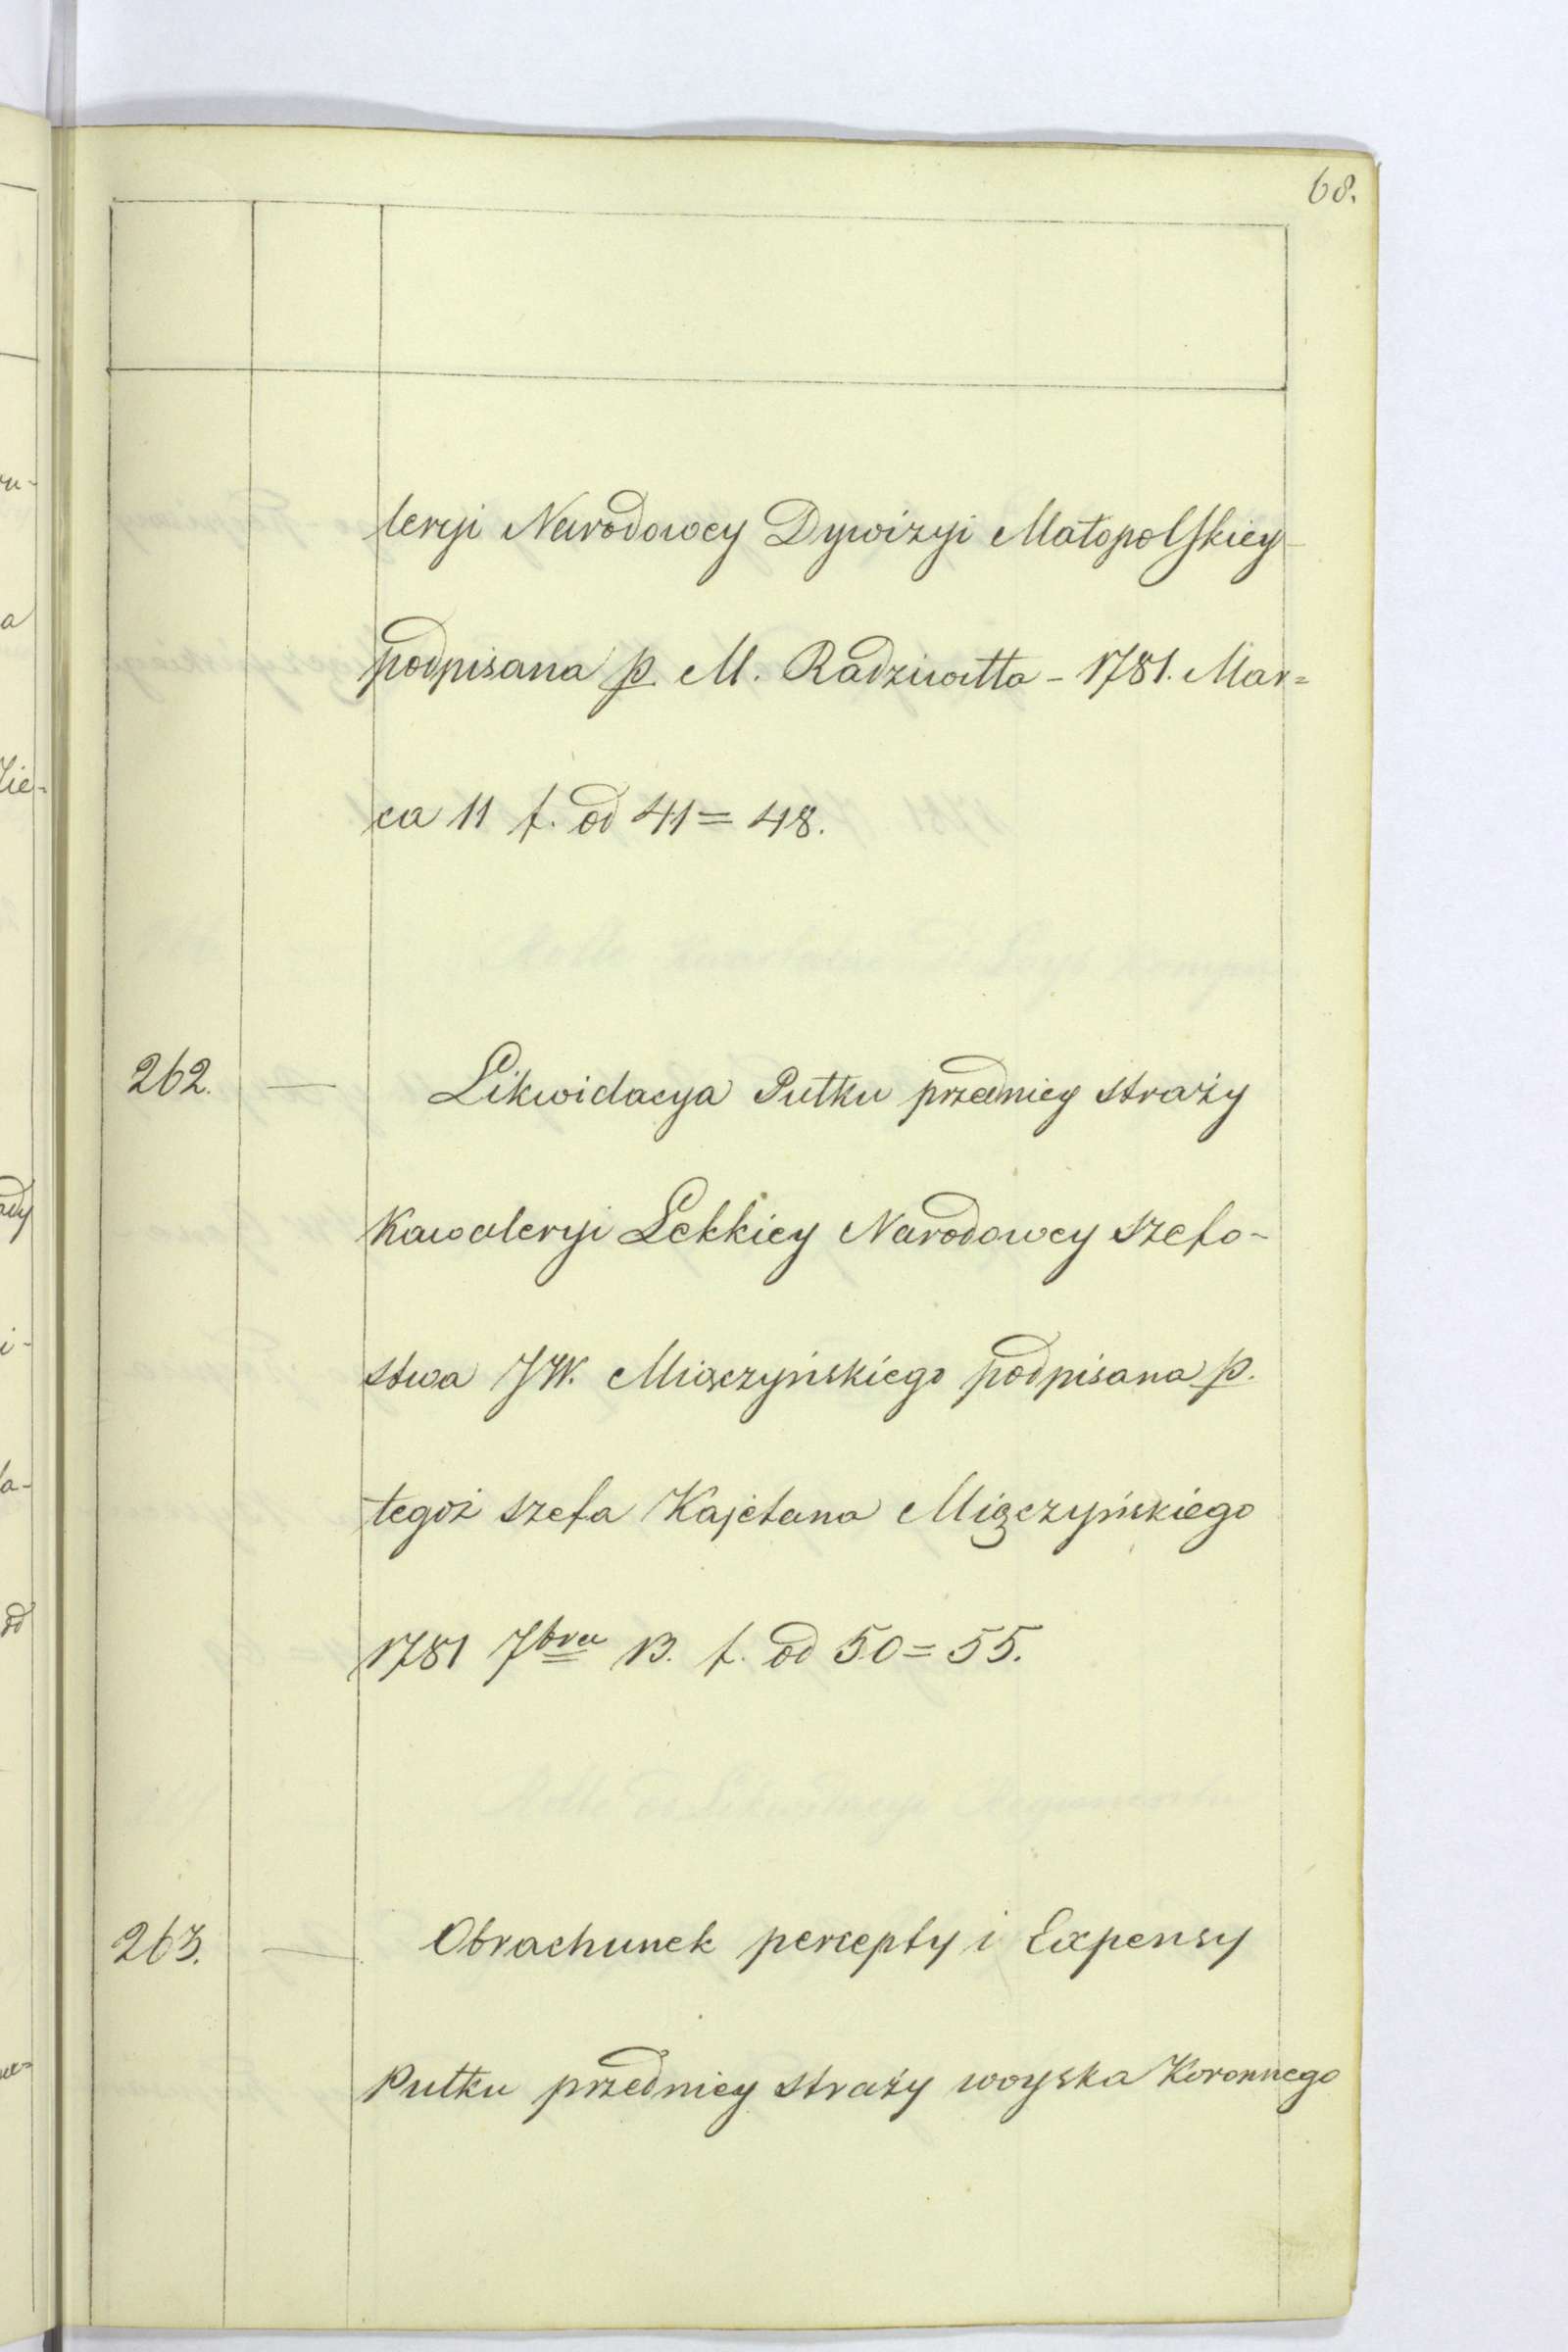 68.
leryi Narodowey Dywizyi Małopolskiey
podpisana p. M. Radziwiłła - 1781. Mar=
ca 11 f. od 41 = 48.
262. — Likwidacya Pułku przedniey straży
Kawaleryi Lekkiey Narodowey szefo-
stwa JW. Miączyńskiego podpisana p.
tegoż szefa Kajetana Miączyńskiego
1781 7bra 13. f. od 50 = 55.
263. — Obrachunek percepty i Expensy
Pułku przedniey straży woyska Koronnego